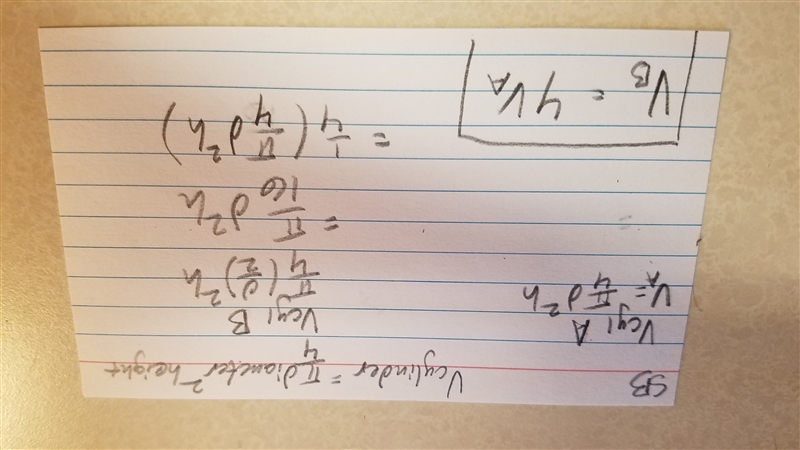 SB
V cylinder = π/4 diameter² height
Vcyl A
V_A = π/4 d²h
Vcyl B
π/4 (d/2)² h
= π/16 d²h
= 1/4 (π/4 d²h)
V_B = 4V_A